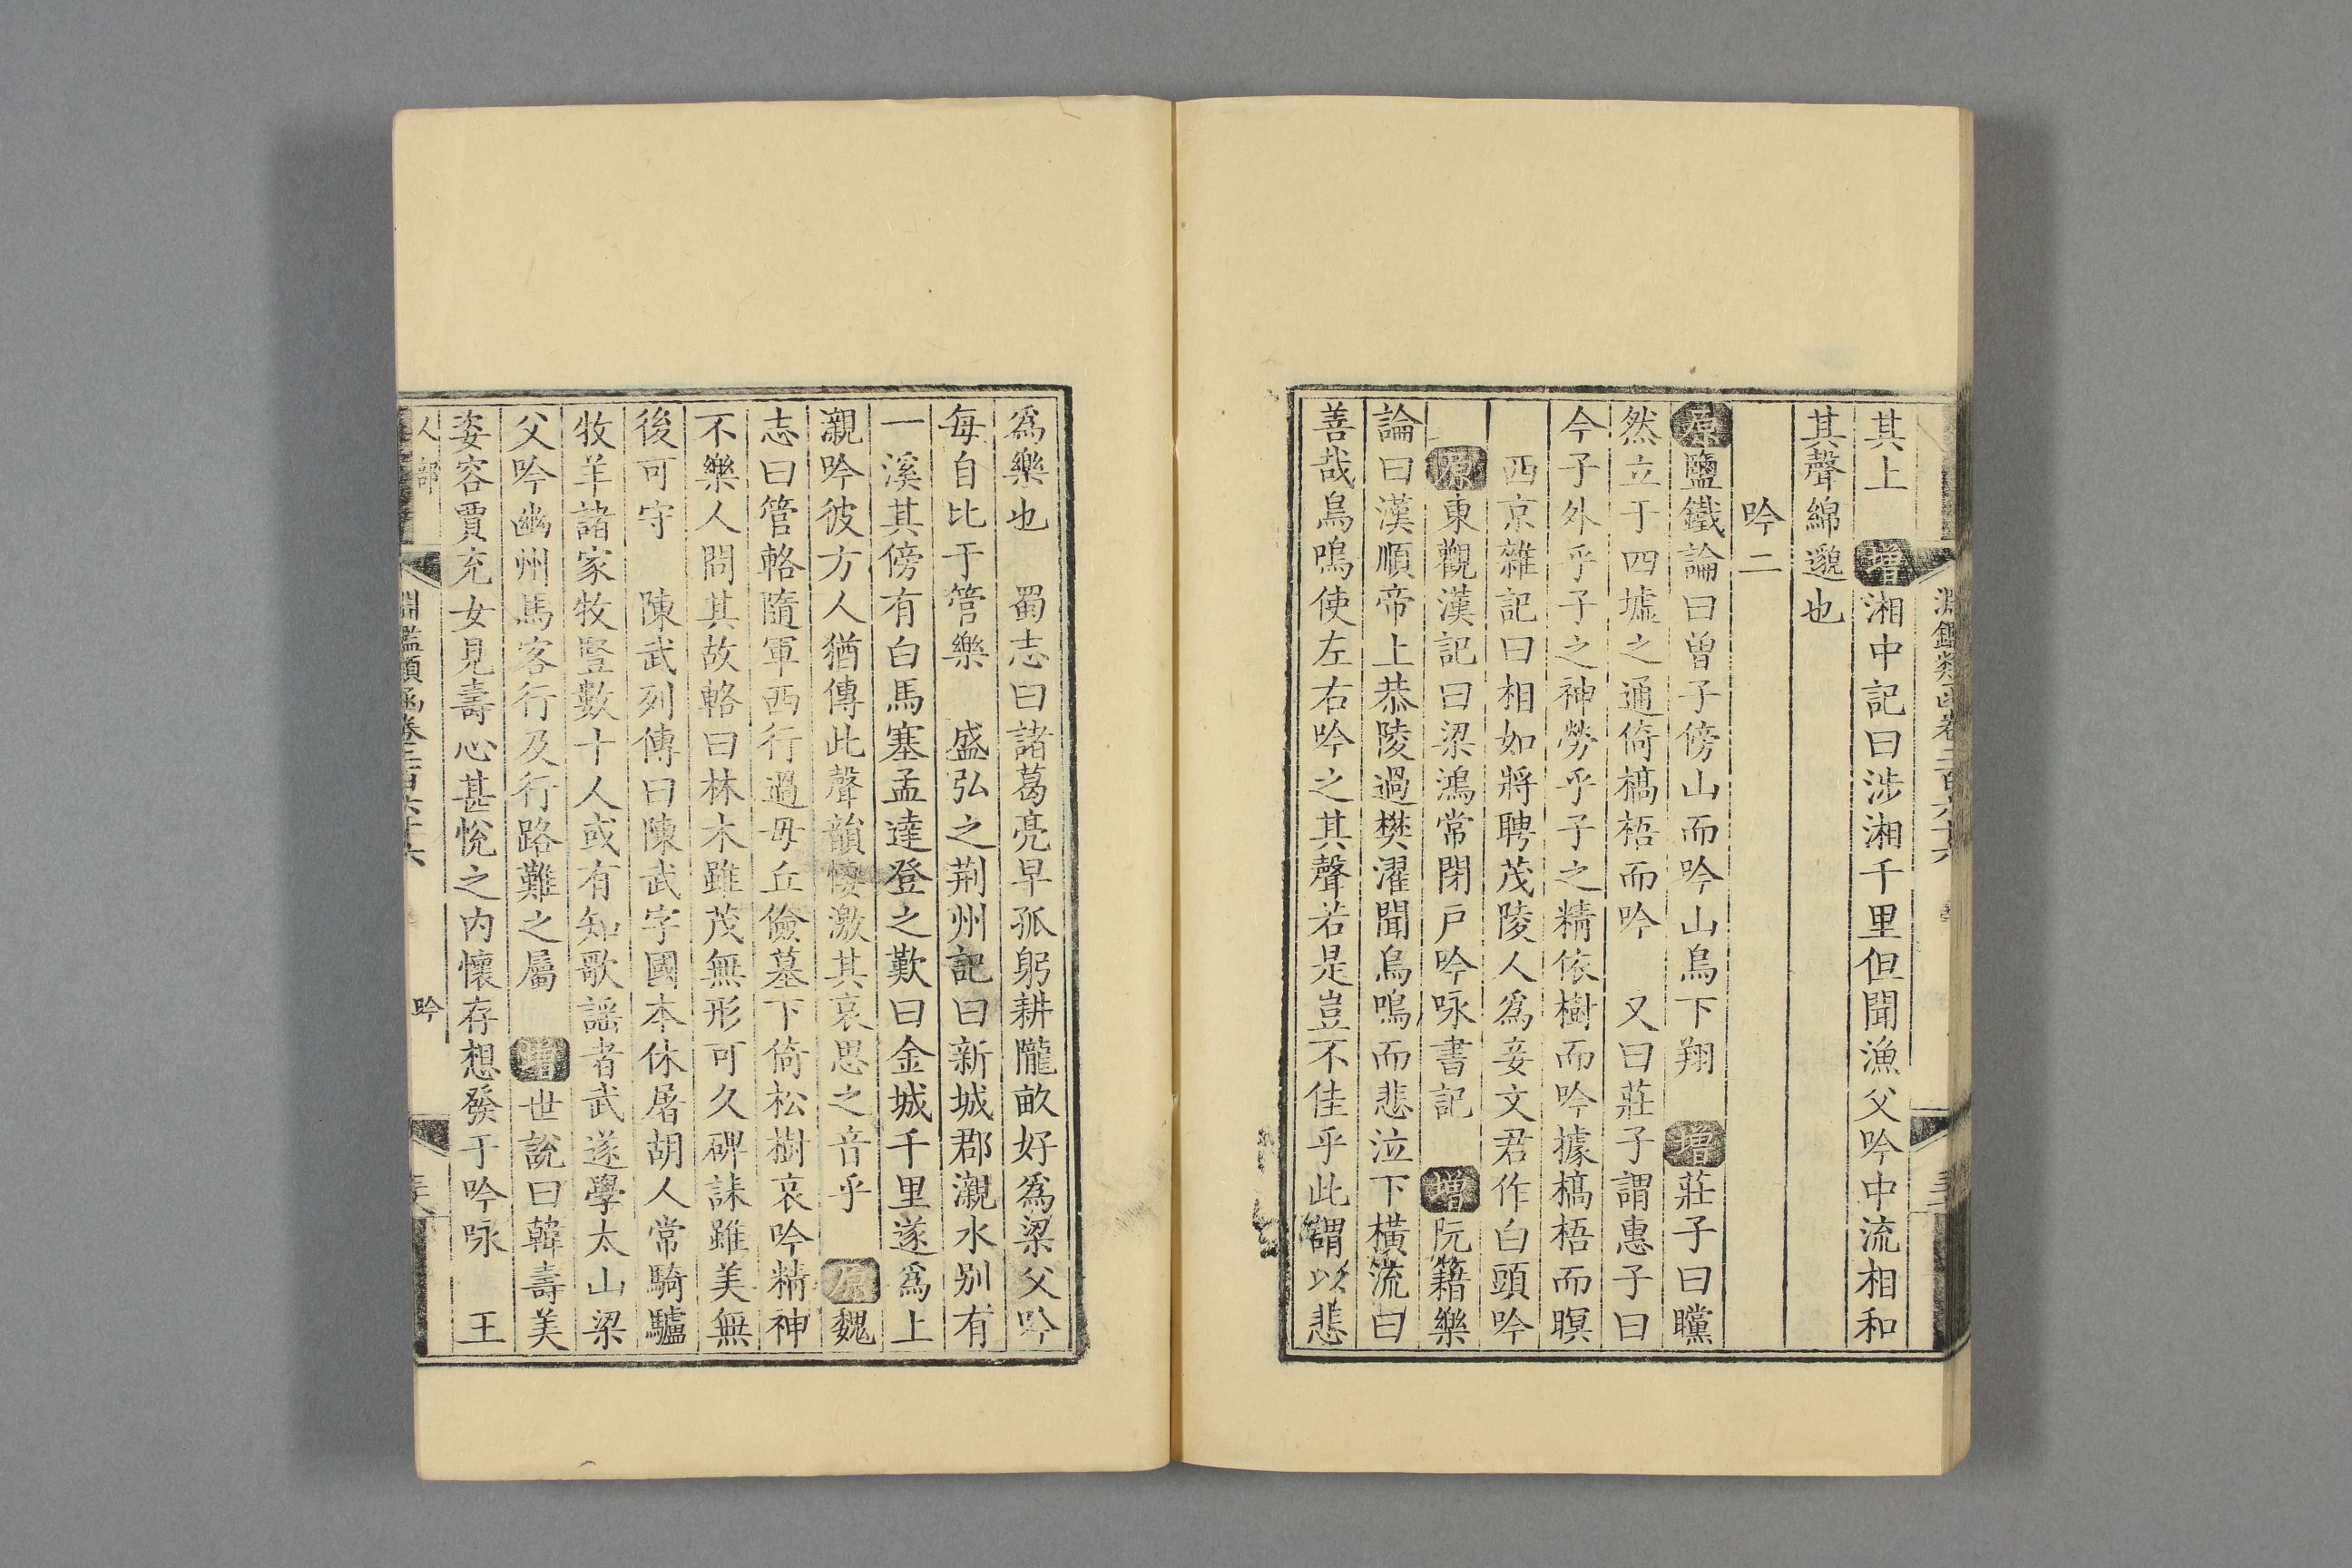 其上　增湘中記曰涉湘千里但聞漁父吟中流相和
其聲綿邈也
吟二
原鹽鐵論曰曾子傍山而吟山鳥下翔　增莊子曰曭
然立于四墟之通倚槁梧而吟　又曰莊子謂惠子曰
今子外乎子之神勞乎子之精依樹而吟據槁梧而瞑
西京雜記曰相如將聘茂陵人爲妾文君作白頭吟
原東觀漢記曰梁鴻常閉戶吟咏書記　增阮籍樂
論曰漢順帝上恭陵過樊濯聞鳥鳴而悲泣下橫流曰
善哉鳥鳴使左右吟之其聲若是豈不佳乎此謂以悲
爲樂也　蜀志曰諸葛亮早孤躬耕隴畝好爲梁父吟
每自比于管樂　盛弘之荆州記曰新城郡瀙水别有
一溪其傍有白馬塞孟達登之歎曰金城千里遂爲上
瀙吟彼方人猶傳此聲韻悽激其哀思之音乎　原魏
志曰管輅隨軍西行過毋丘儉墓下倚松樹哀吟精神
不樂人問其故輅曰林木雖茂無形可久碑誄雖美無
後可守　陳武列傳曰陳武字國本休屠胡人常騎驢
牧羊諸家牧豎數十人或有知歌謡者武遂學太山梁
父吟幽州馬客行及行路難之屬　增世說曰韓壽美
姿容賈充女見壽心甚悅之内懷存想發于吟咏　王
人部　淵鑑類函卷三百六十六　吟